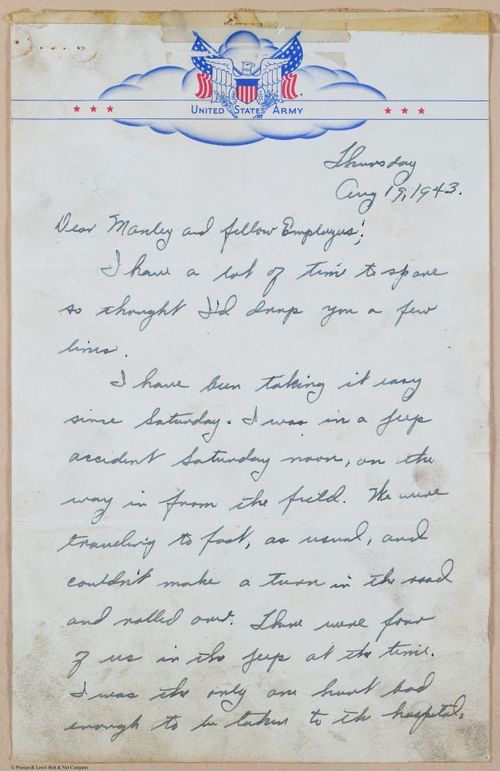 United States Army
Thursday
Aug 19, 1943.
Dear Manley and fellow Employees;
I have a lot of time to spare
so thought I'd drop you a few
lines.
I have been taking it easy
since Saturday. I was in a jeep
accident Saturday noon, on the
way in from the field. We were
traveling to fast, as usual, and
couldn't make a turn in the road
and rolled over. There were four
of us in the jeep at the time.
I was the only one hurt bad
enough to be taken to the hospital.
© Pitman & Lewis Bolt & Nut Company